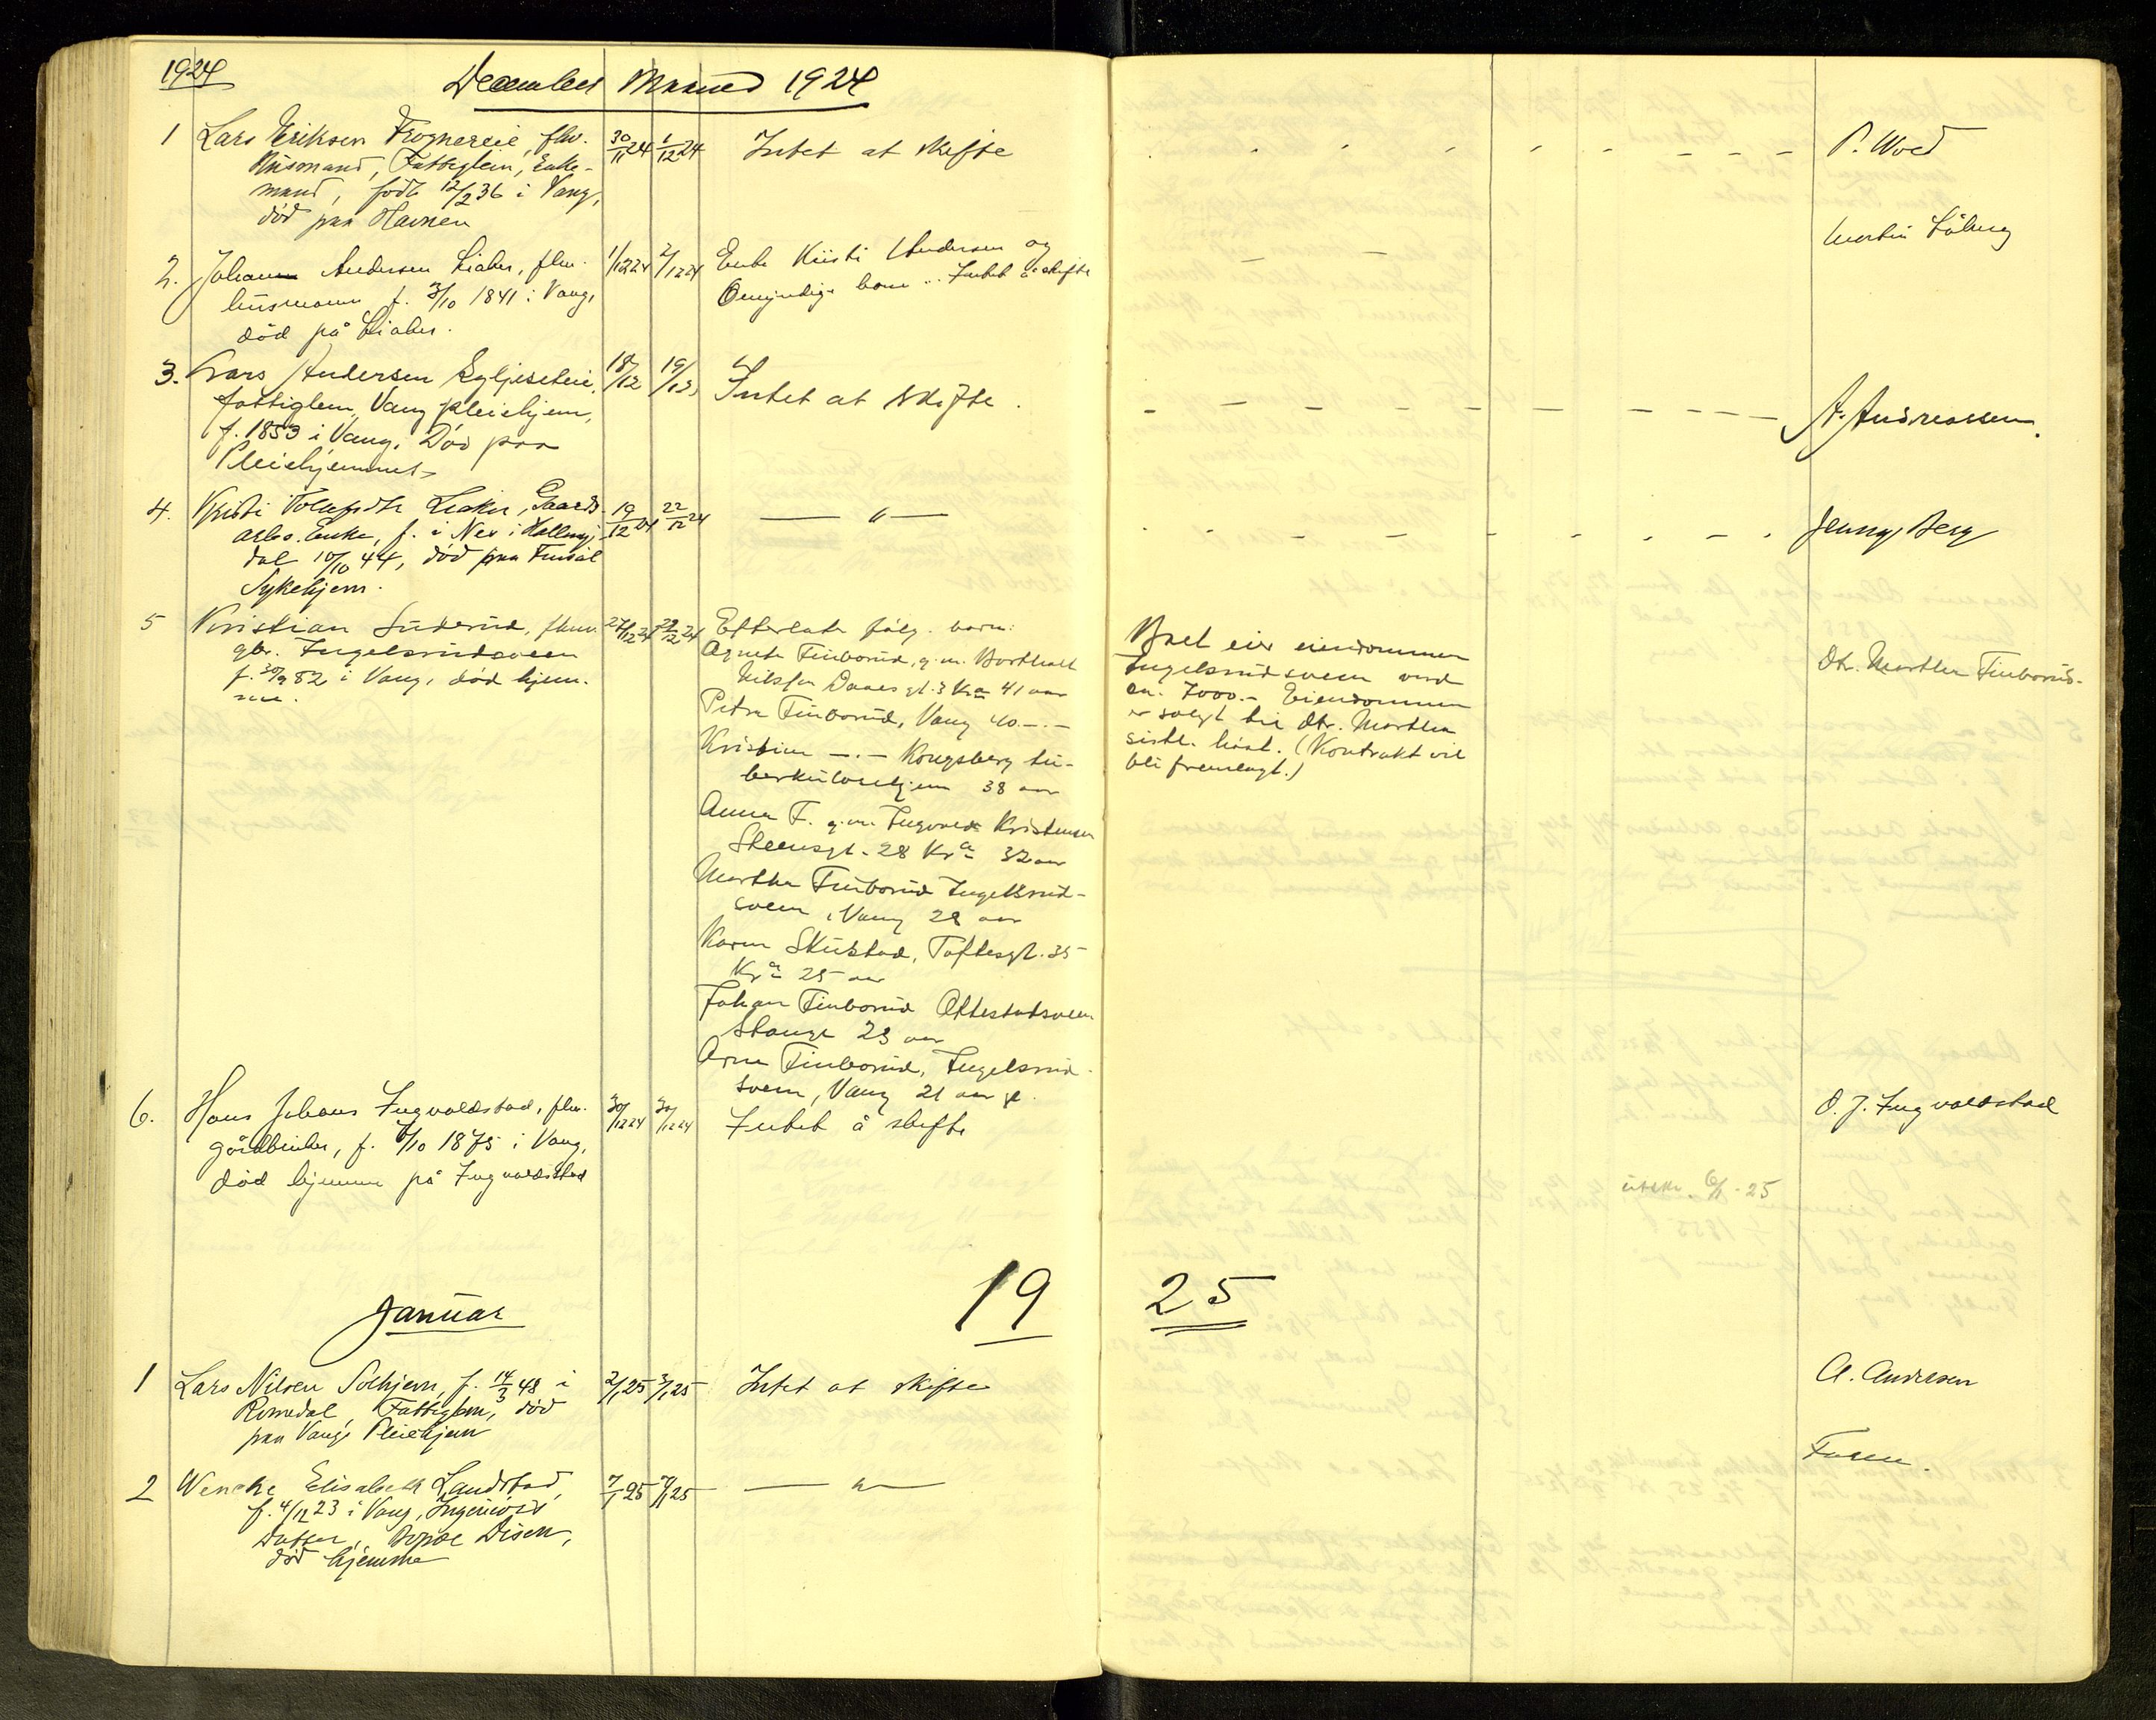 1924
December Maaned 1924
1 Lars Eriksen Frognereie, fhv. 30/11 24 1/12 24 Intet at skifte P. Wold
Husmand, Fattiglem, Enke-
mand, født 12/2 36 i Vang,
død paa Havnen
2. Johan Andersen Liaker, fhv. 1/12 24 2/12 24 Enke Kristi Andersen og Martin Løberg
husmann f. 3/10 1841 i Vang, Omyndige barn .. Intet å skifte
død på Liaker.
3. Lars Andersen 18/12 19/12 Intet at skifte. A. Andreassen.
fattiglem, Vang pleiehjem,
f. 1853 i Vang. Død paa
Pleiehjemmet
4. Kjisti Liaker, Gaards- 19/12 24 22/12 24 — " — Jenny Berg
arb. Enke, f. i Nes i Halling-
dal 10/10 44, død paa
Sykehjem.
5 Kristian Finborud, fhv. 27/12 24 29/12 24
gbr. Ingelsrudsveen
f. 30/9 52 i Vang, død hjem-
me.
Efterlater følg. barn:
Agnete Finborud, g.m.
Nilsen gt. 3 Kra 41 aar
Petra Finborud, Vang 40 — . —
Kristian — . — Kongsberg tu-
berkulosehjem 38 aar
Anna F. g.m. Ingvald Kristensen
Steensgt. 28 Kra 32 aar
Martha Finborud Ingelsrud-
sveen, Vang 28 aar
Karen Skustad, Toftesgt. 35
Kra 25 aar
Johan Finborud
Stange 23 aar
Arne Finborud, Ingelsrud-
sveen, Vang 21 aar
Boet eier eiendommen
Ingelsrudsveen verd
ca. 7000.- Eiendommen
er solgt til dtr. Martha
sistl. høst. (Kontrakt vil
bli fremlagt.)
Dtr. Martha Finborud.
6. Hans Johans Ingvaldstad, fhv. 30/12 24 30/12 24 Intet å skifte O. J. Ingvaldstad
gårdbruker, f. /10 1875 i Vang,
død hjemme på Ingvaldstad
utskr. 6/1 - 25
Januar 19 25
1 Lars Nilsen Solhjem, f. 14/3 48 i 2/1 25 3/1 25 Intet at skifte A. Andersen
Romedal, Fattiglem, død
paa Vangs Pleiehjem
2 Wenche Elisabeth Landstad, 7/1 25 7/1 25 — " — Faren.
f. 4/12 23 i Vang, Ingeniørs
Datter, Disen,
død hjemme